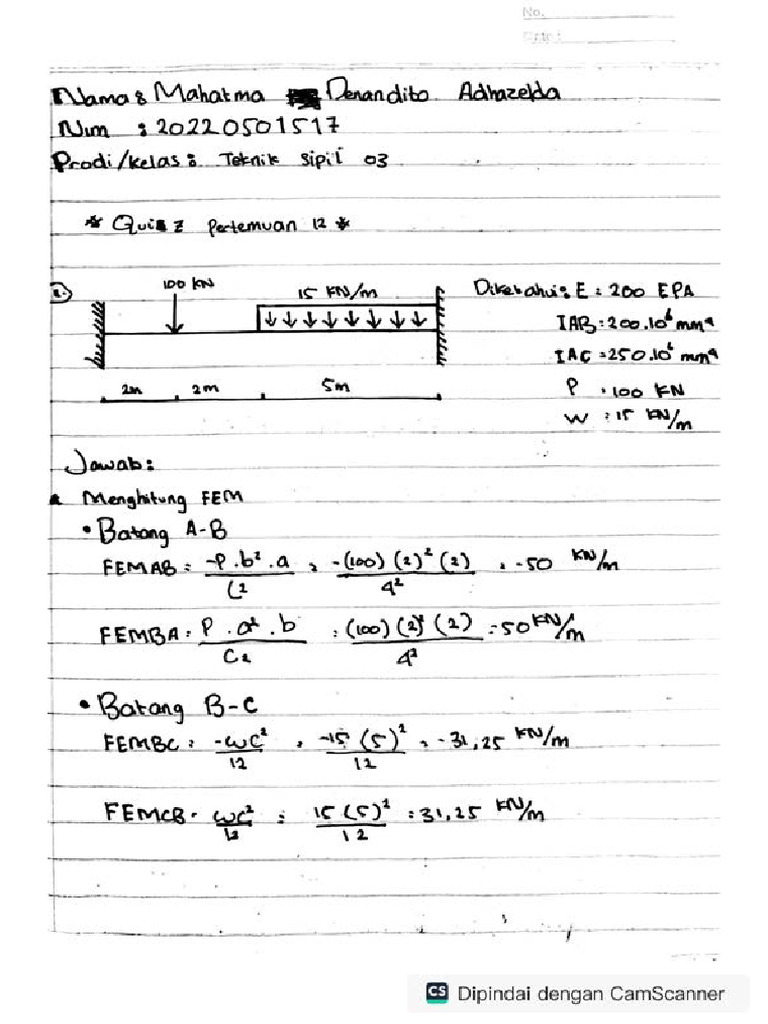 No.
Date :
Nama : Mahatma Denandito Adhazelda
Nim : 20220501517
Prodi/kelas : Teknik Sipil 03
* Quiz Pertemuan 12 *
1.) 100 kN 15 kN/m Diketahui : E = 200 EPA
IAB = 200.10⁶ mm⁴
IAC = 250.10⁶ mm⁴
2m 2m 5m P = 100 KN
W = 15 KN/m
Jawab :
Menghitung FEM
• Batang A-B
FEMAB = -P.b².a / L2 = -(100)(2)²(2) / 4² = -50 KN/m
FEMBA = P.a².b / L2 = (100)(2)²(2) / 4² = 50 KN/m
• Batang B-C
FEMBC = -WL² / 12 = -15(5)² / 12 = -31,25 KN/m
FEMCB = WL² / 12 = 15(5)² / 12 = 31,25 KN/m
CS Dipindai dengan CamScanner